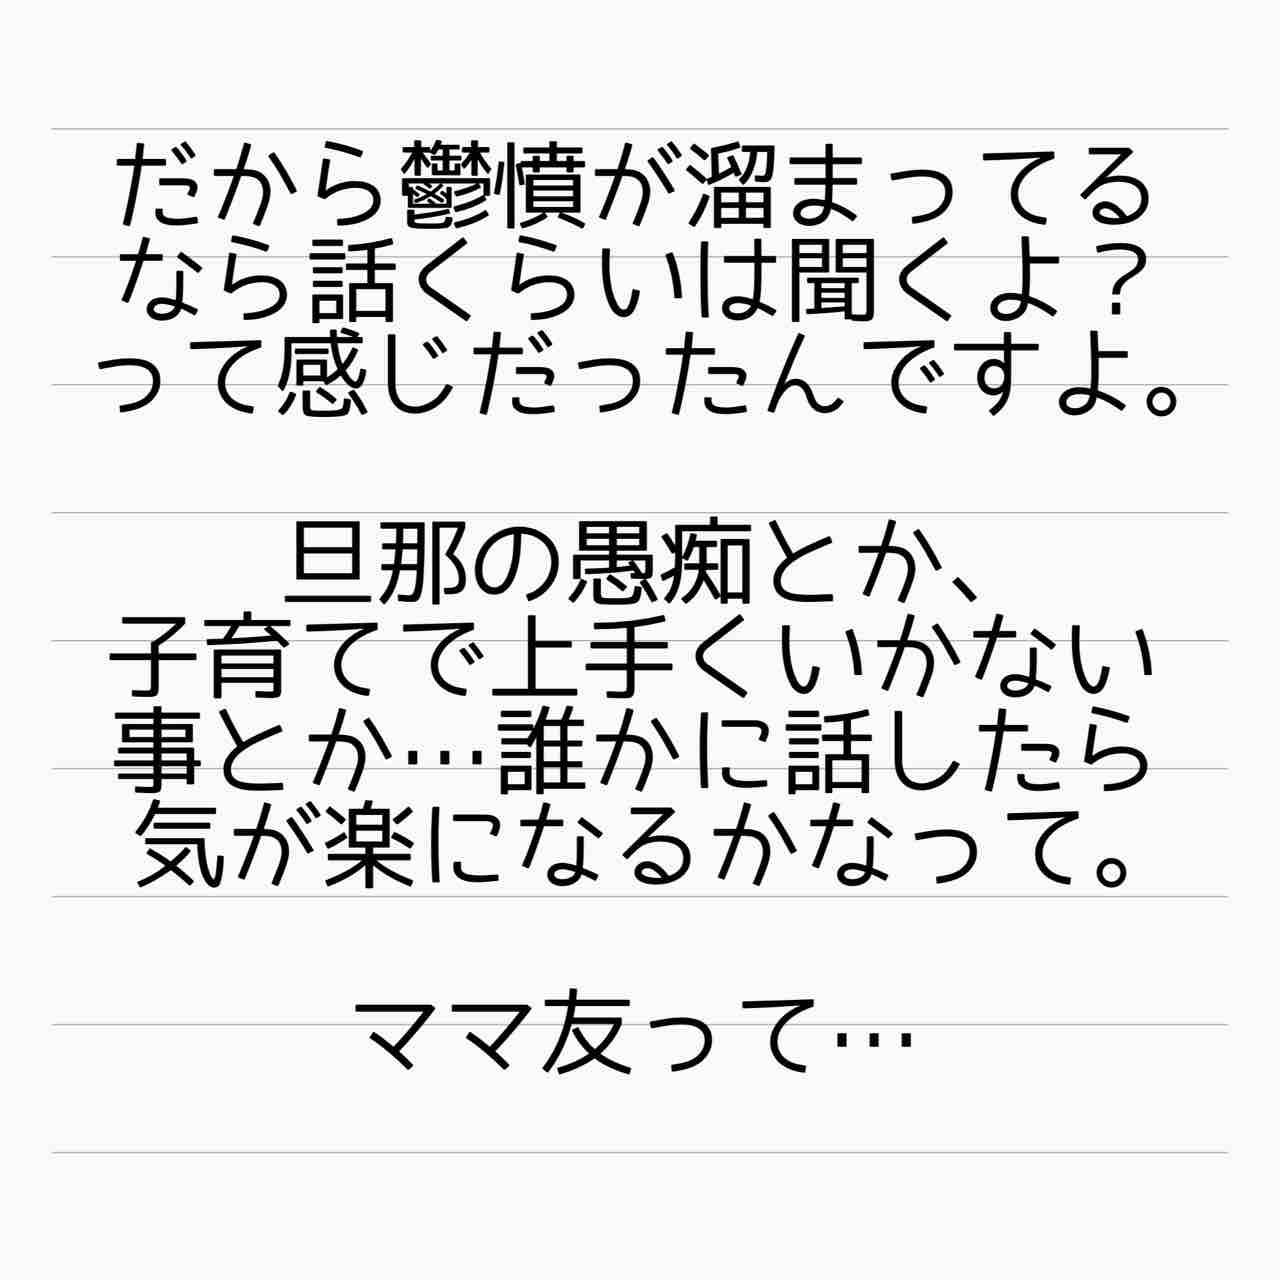 だから鬱憤が溜まってる
なら話くらいは聞くよ？
って感じだったんですよ。
旦那の愚痴とか、
子育てで上手くいかない
事とか…誰かに話したら
気が楽になるかなって。
ママ友って…